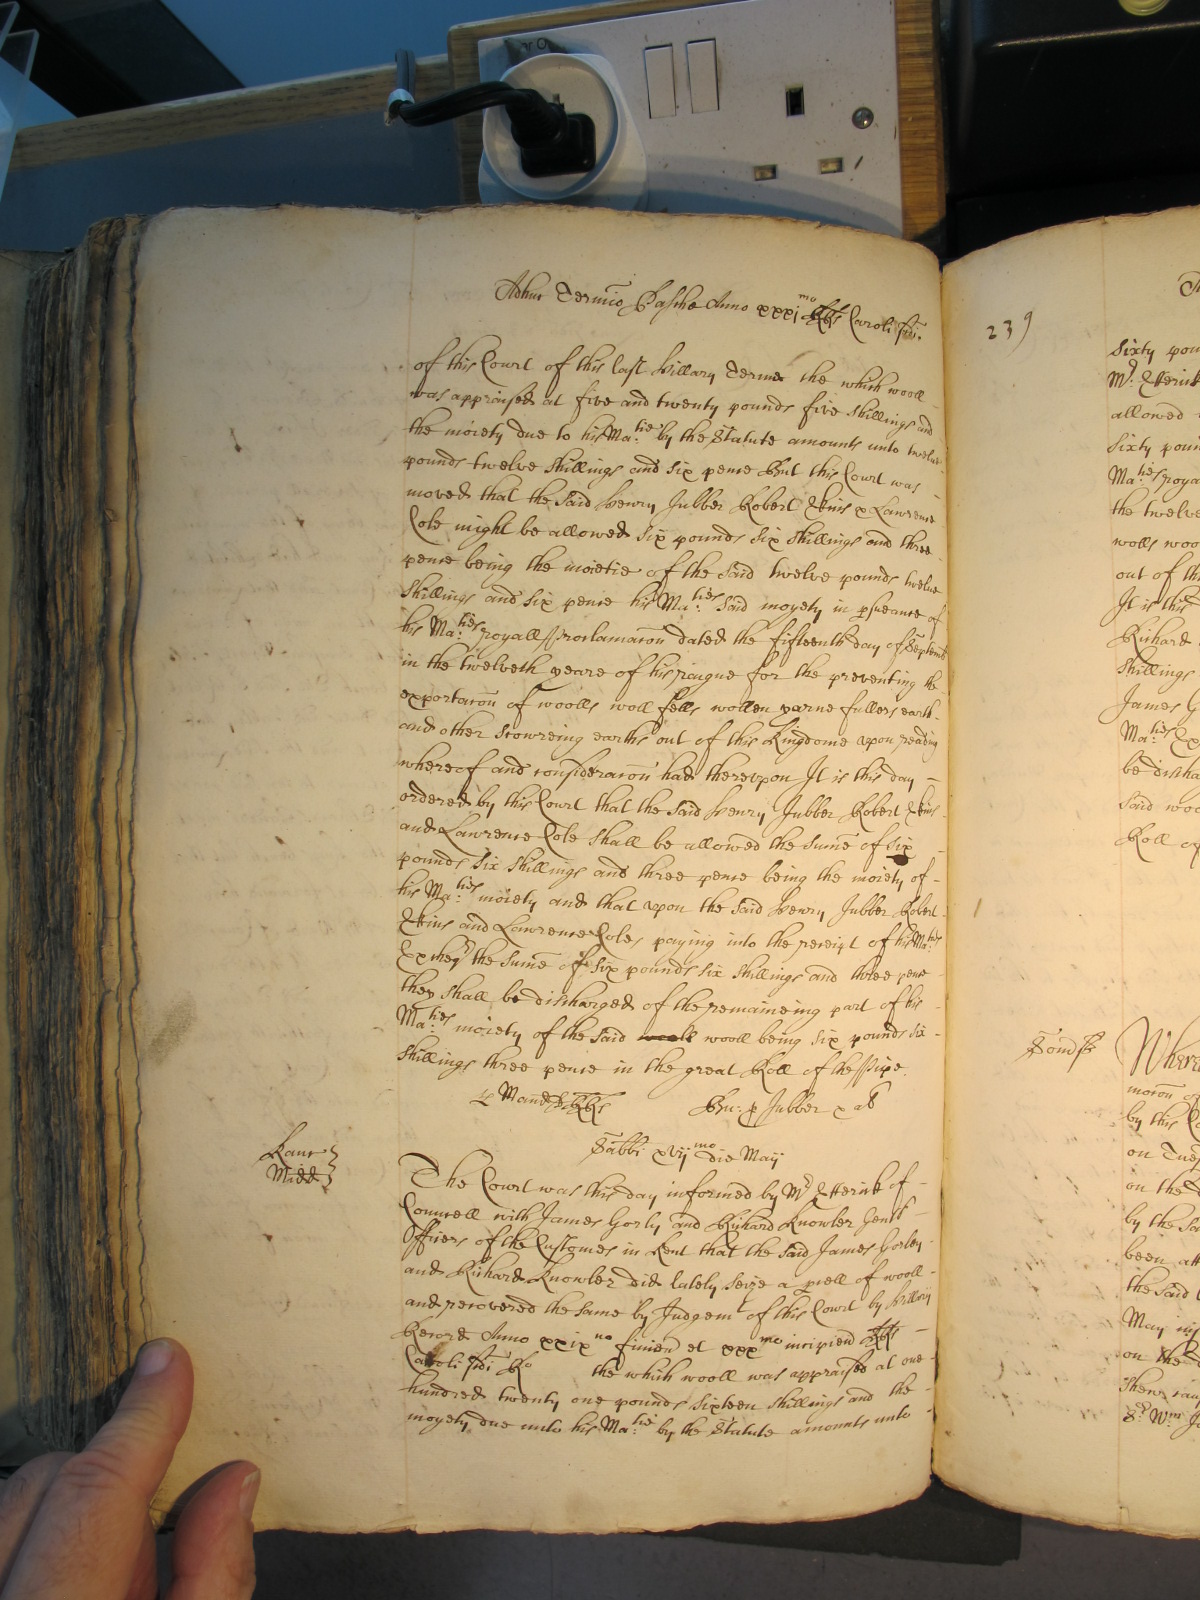 Adhuc Termīo Pasche Anno xxxj mo RRs Caroli scdi.
of this Court of this last Hillary Terme the which wooll
was appraised at five and twenty pounds five shillings and
the moiety due to his Ma:tie by the Statute amounts unto twelve
pounds twelve shillings and six pence But this Court was
moved that the said Henry Jubber Robert Ekins & Lawrence
Cole might be allowed six pounds six shillings and three
pence being the moietie of the said twelve pounds twelve
shillings and six pence his Ma:ties said moyety in psueance of
his Ma:ties royall Proclamacoñ dated the fifteenth day of Septemb
in the twelveth yeare of his raigne for the preventing the
exportacoñ of woolls woll fells wollen yarne fullers earth
and other scowreing earths out of this Kingdome upon reading
whereof and consideracoñ had thereupon It is this day
ordered by this Court that the said Henry Jubber Robert Ekins
and Lawrence Cole shall be allowed the sume of six
pounds six shillings and three pence being the moiety of
his Ma:ties moiety and that upon the said Henry Jubber Robert
Ekins and Lawrence Coles paying into the receipt of his Ma:ties
Excheqr the sume of six pounds six shillings and three pence
they shall be discharged of the remaineing part of his
Ma:ties moiety of the said wooll wooll being six pounds six
shillings three pence in the great Roll of the Pipe.
Jubber &
Sabbi xvij mo die Maij
Kanc
Midd
The Court was this day informed by Mr Etterick of
Councell with James Gorly and Richard Knowler Gentl
Officers of the Customes in Kent that the said James Gorley
and Richard Knowler did lately seize a pcell of wooll
and recovered the same by Judgemt of this Court by Hillary
Record Anno xxix no finien et xxx mo incipien RRs
Caroli scdi Ro the which wooll was appraised at one
hundred twenty one pounds sixteen shillings and the
moyety due unto his Ma:tie by the Statute amounts unto
239
sixty poun
Mr: Etterick
allowed
sixty poun
Ma:ties roya
the twelve
wolls woo
out of th
It is this
Richard
shillings
James G
Ma:ties Ex
be discha
said woo
Roll of
Wherea
moron of
by this Co
on Tues
on the
by the sa
been att
the said
May
on the